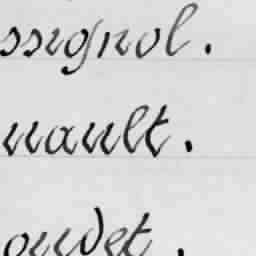 ssignol.
nault.
oudet.